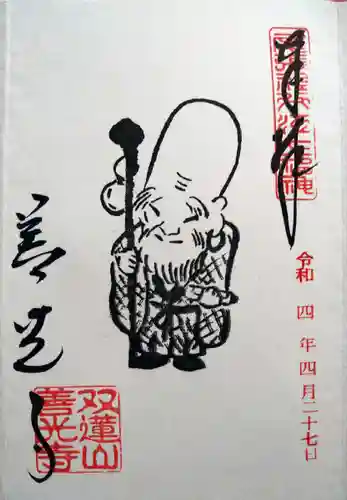 奉拝
令和 四 年 四 月 二 十 七 日
善光寺
双蓮山
善光寺